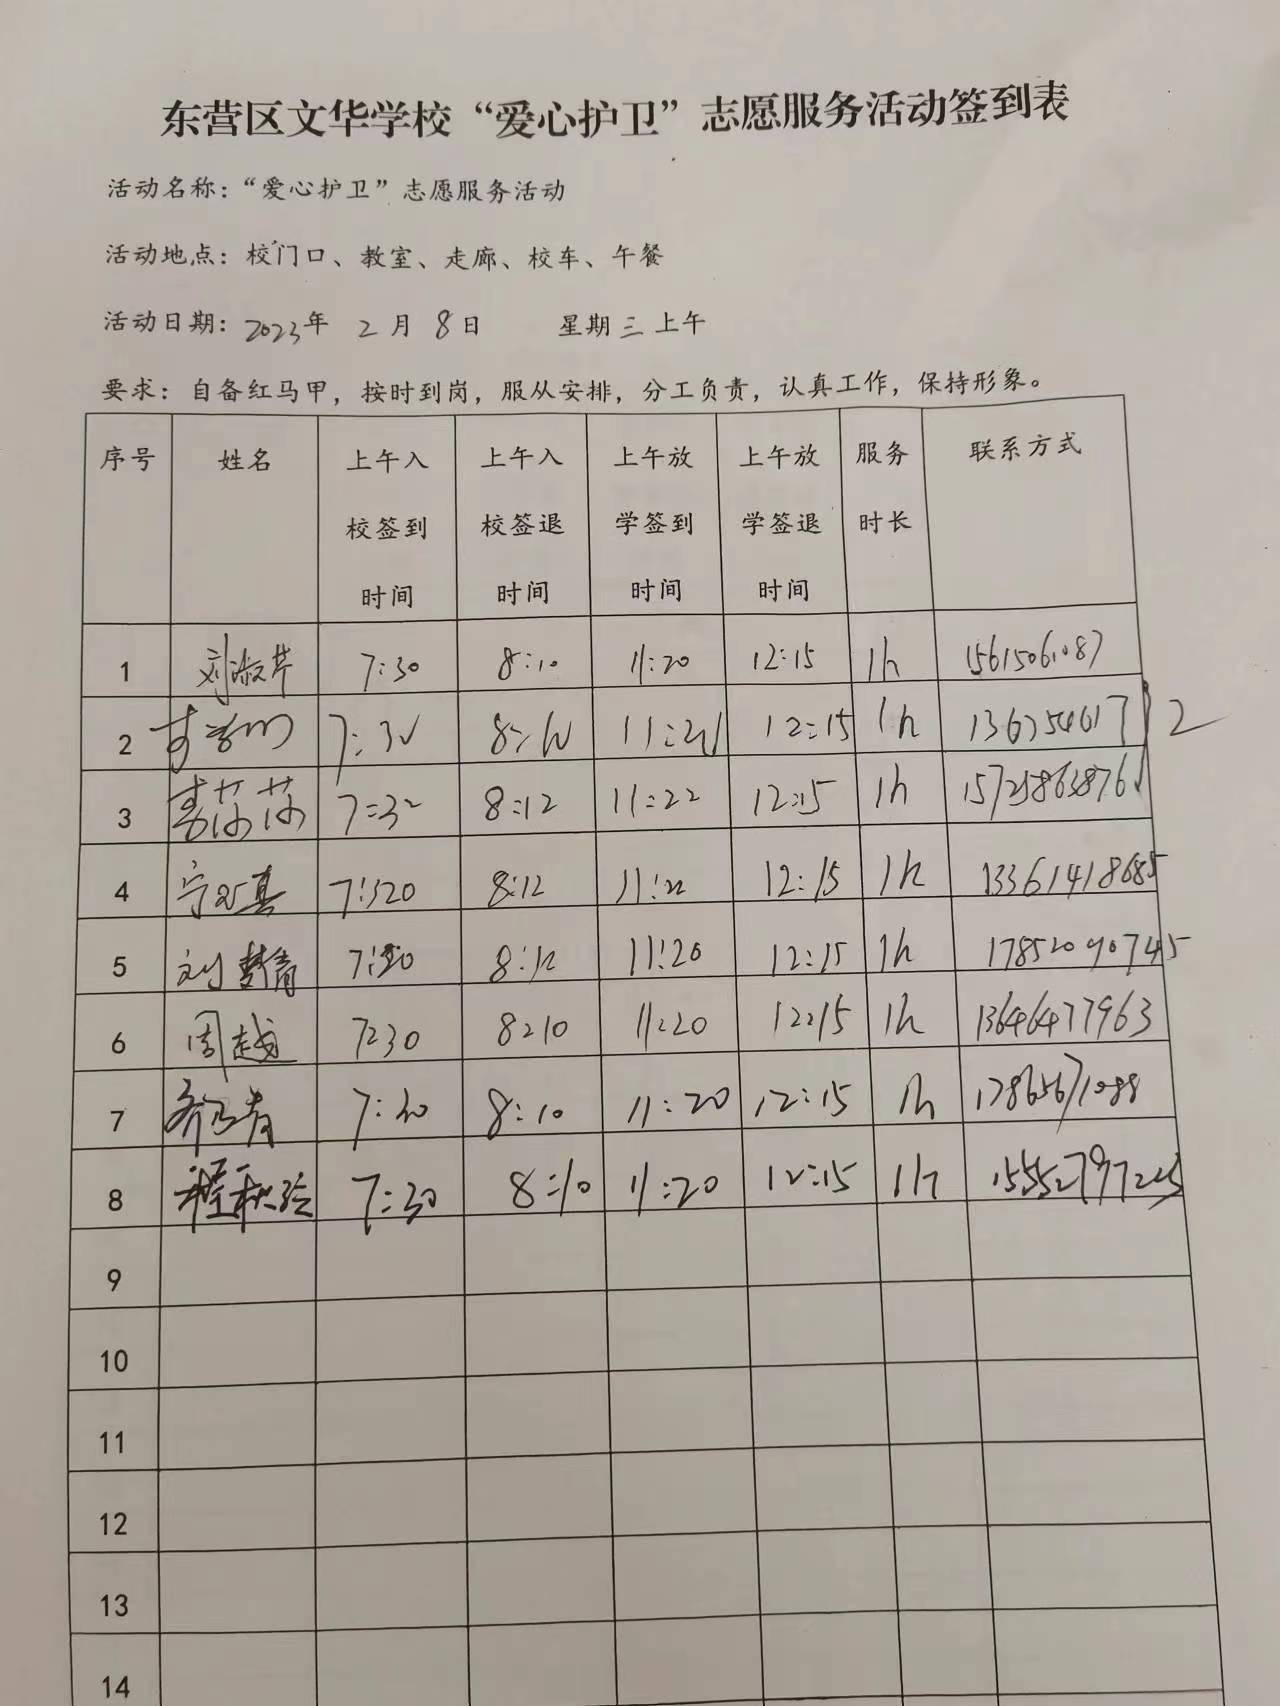 东营区文华学校“爱心护卫”志愿服务活动签到表
活动名称：“爱心护卫”志愿服务活动
活动地点：校门口、教室、走廊、校车、午餐
活动日期：2023年 2月 8日 星期三上午
要求：自备红马甲，按时到岗，服从安排，分工负责，认真工作，保持形象。
序号 姓名 上午入校签到时间 上午入校签退时间 上午放学签到时间 上午放学签退时间 服务时长 联系方式
1 刘淑芹 7:30 8:10 11:20 12:15 1h 15615061087
2 12:15 1h
3 莎莎 7:32 8:12 11:22 12:15 1h
4 8:12 11:22 12:15 1h 13361418685
5 刘梦倩 8:12 11:20 12:15 1h 17852090745
6 周越 7:30 8:10 11:20 12:15 1h 13646477963
7 7:30 8:10 11:20 12:15 1h 17865671088
8 程秋玲 7:30 8:10 11:20 12:15 1h
9
10
11
12
13
14